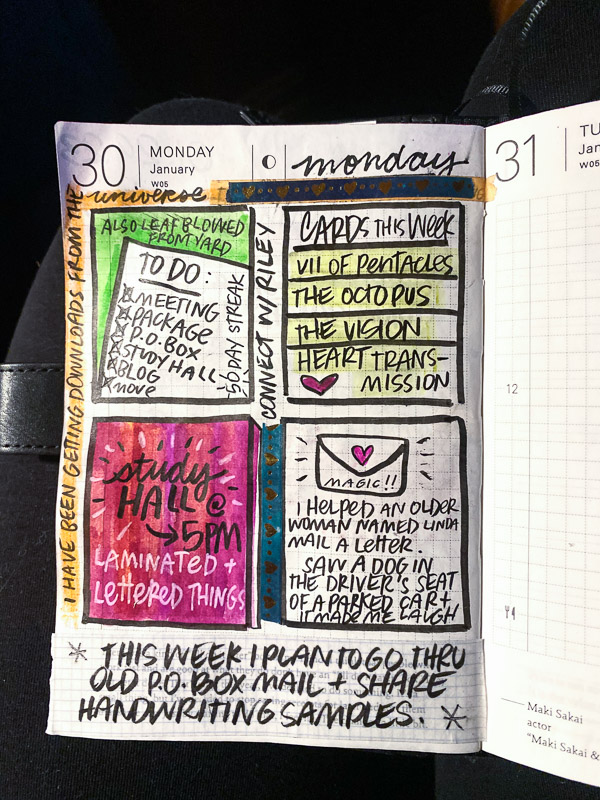 30
MONDAY
January
W05
monday
I HAVE BEEN GETTING DOWNLOADS FROM THE
universe
ALSO LEAF BLOWED
FROM YARD
TO DO:
MEETING
PACKAGE
P.O. BOX
STUDY HALL
BLOG
move
56 DAY STREAK
CONNECT W/ RILEY
CARDS THIS WEEK
VII OF PENTACLES
THE OCTOPUS
THE VISION
HEART TRANS-
MISSION
study
HALL @
5PM
LAMINATED +
LETTERED THINGS
MAGIC!!
I HELPED AN OLDER
WOMAN NAMED LINDA
MAIL A LETTER.
SAW A DOG IN
THE DRIVER'S SEAT
OF A PARKED CAR +
IT MADE ME LAUGH
* THIS WEEK I PLAN TO GO THRU
OLD P.O. BOX MAIL + SHARE
HANDWRITING SAMPLES. *
31
TU
Jan
W05
12
Maki Sakai
actor
"Maki Sakai &